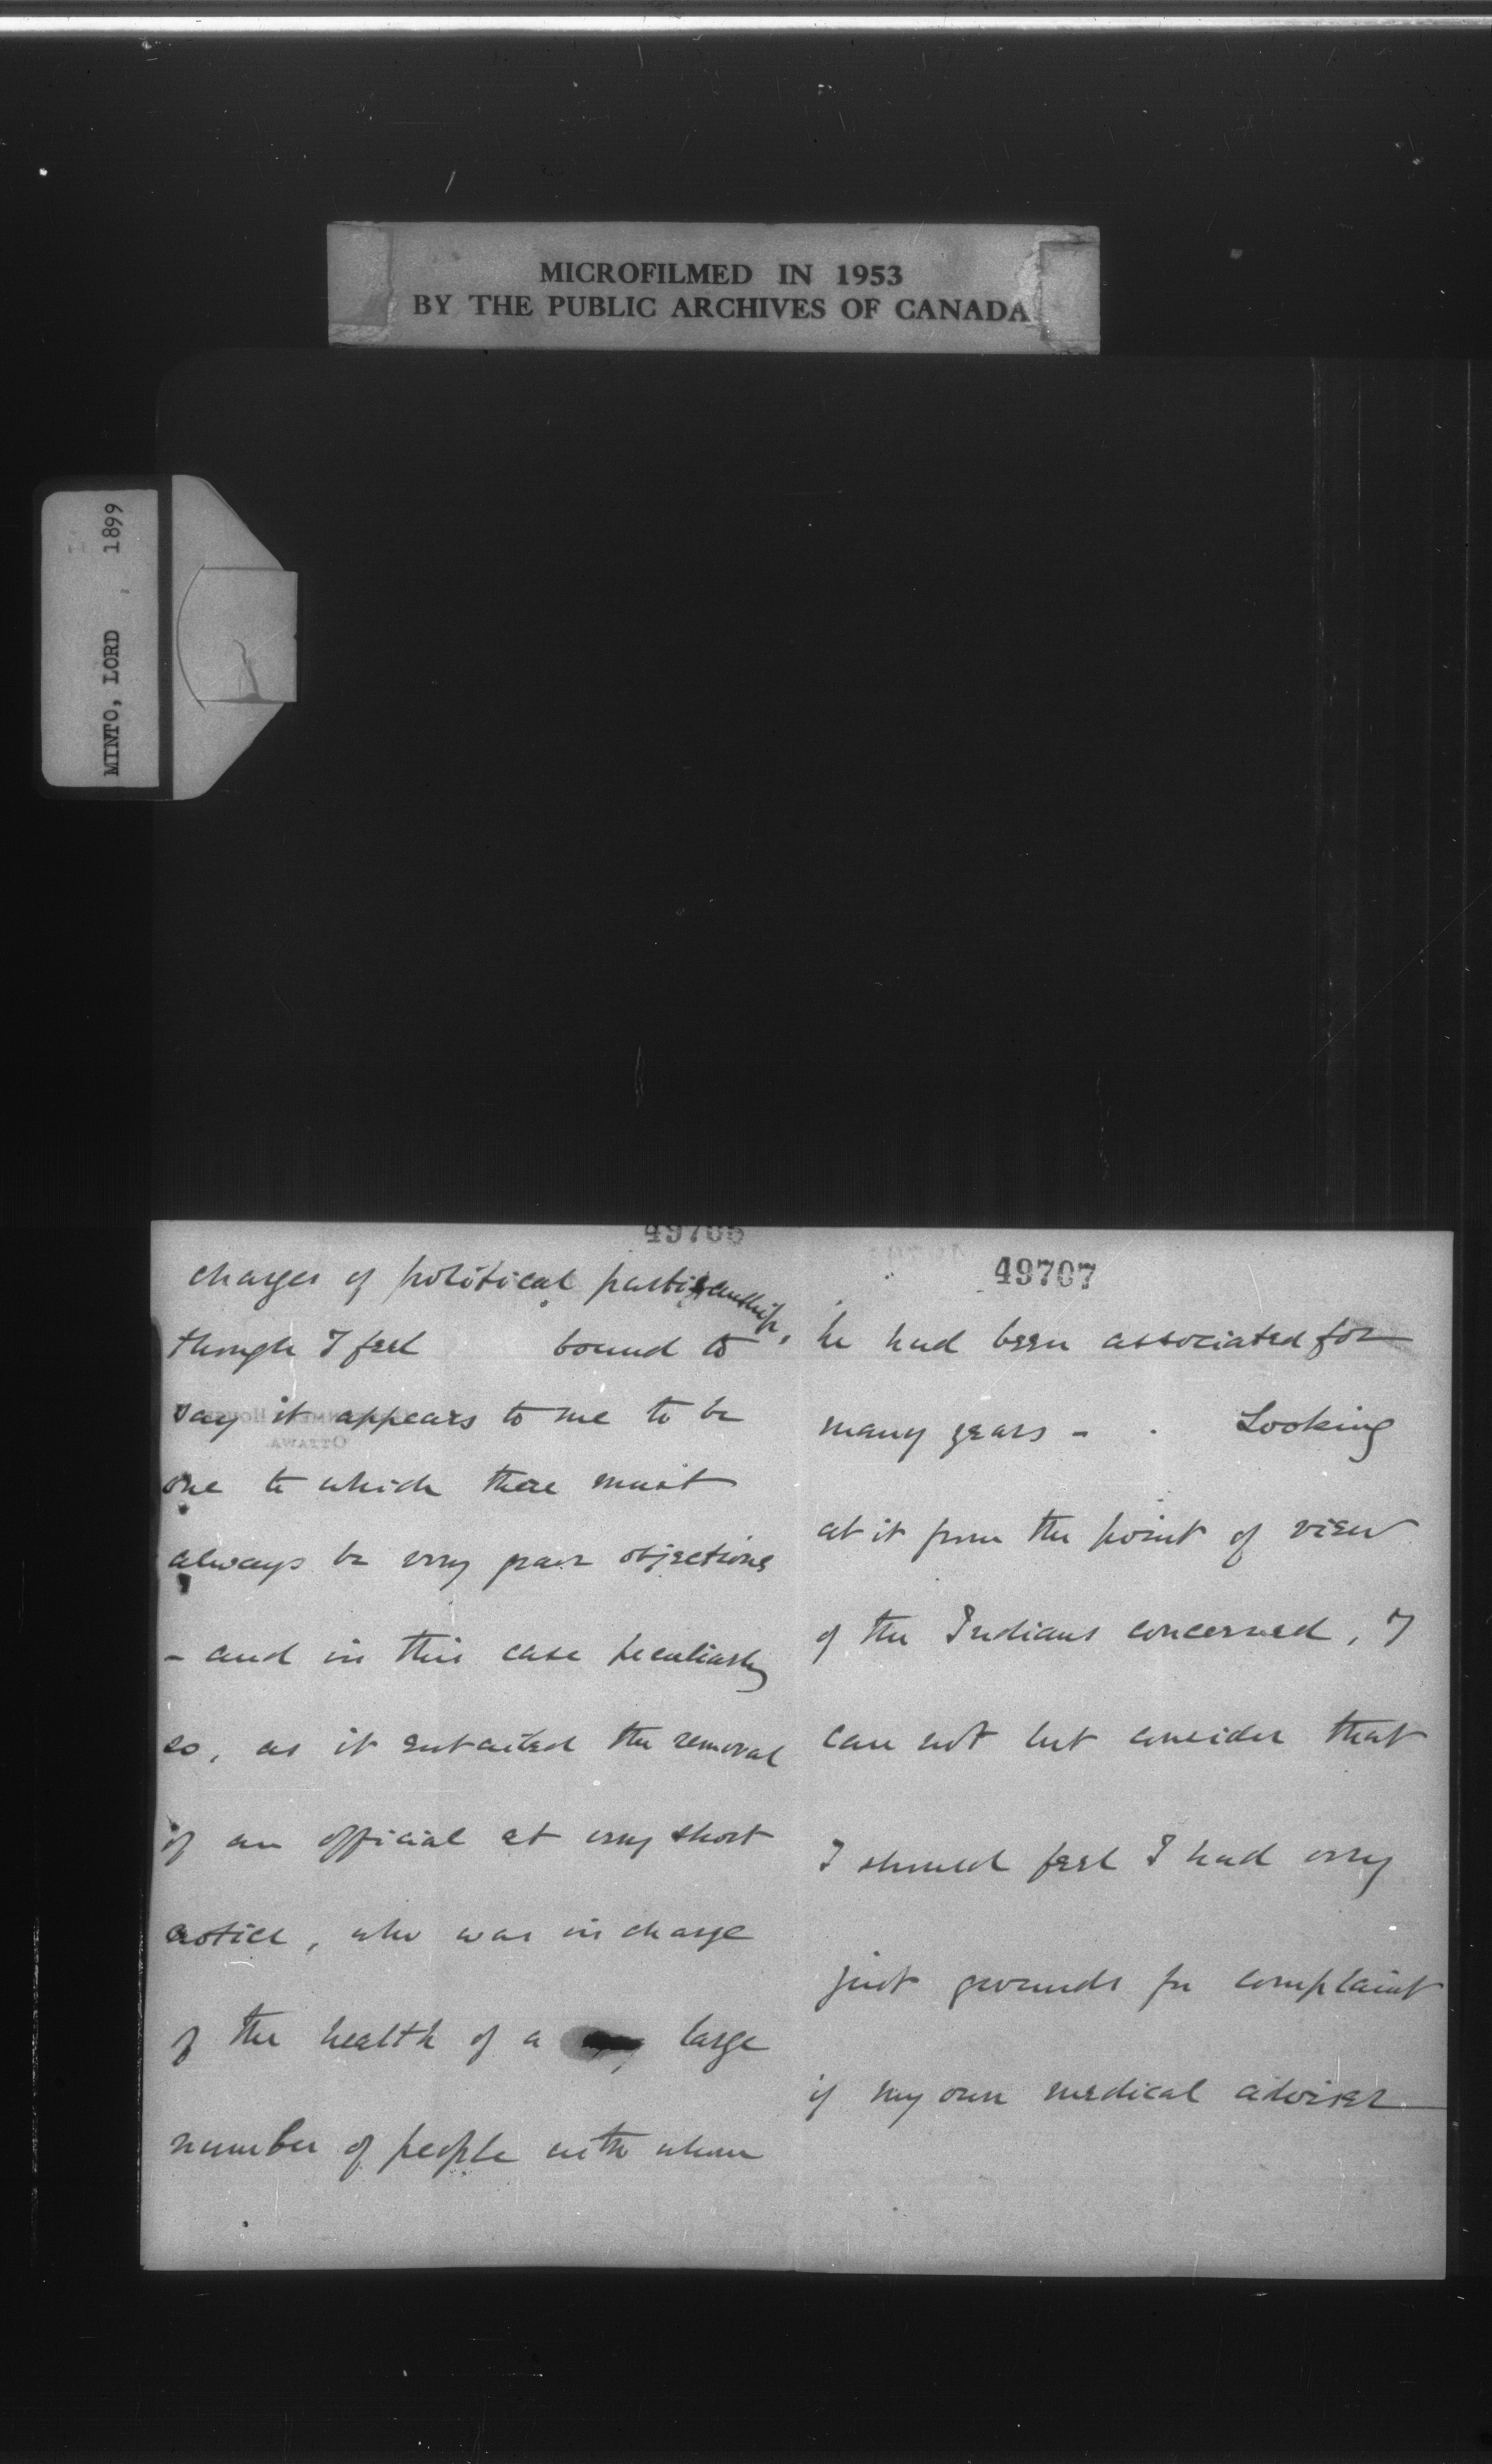 MICROFILMED IN 1953
BY THE PUBLIC ARCHIVES OF CANADA
MINTO, LORD 1899
49706
charges of political partisanship,
though I feel bound to
say it appears to me to be
one to which there must
always be very grave objections
- and in this case peculiarly
so, as it entailed the removal
of an official at very short
notice, who was in charge
of the health of a large
number of people with whom
49707
he had been associated for
many years - . Looking
at it from the point of view
of the Indians concerned, I
can not but consider that
I should feel I had very
just grounds for complaint
if my own medical adviser